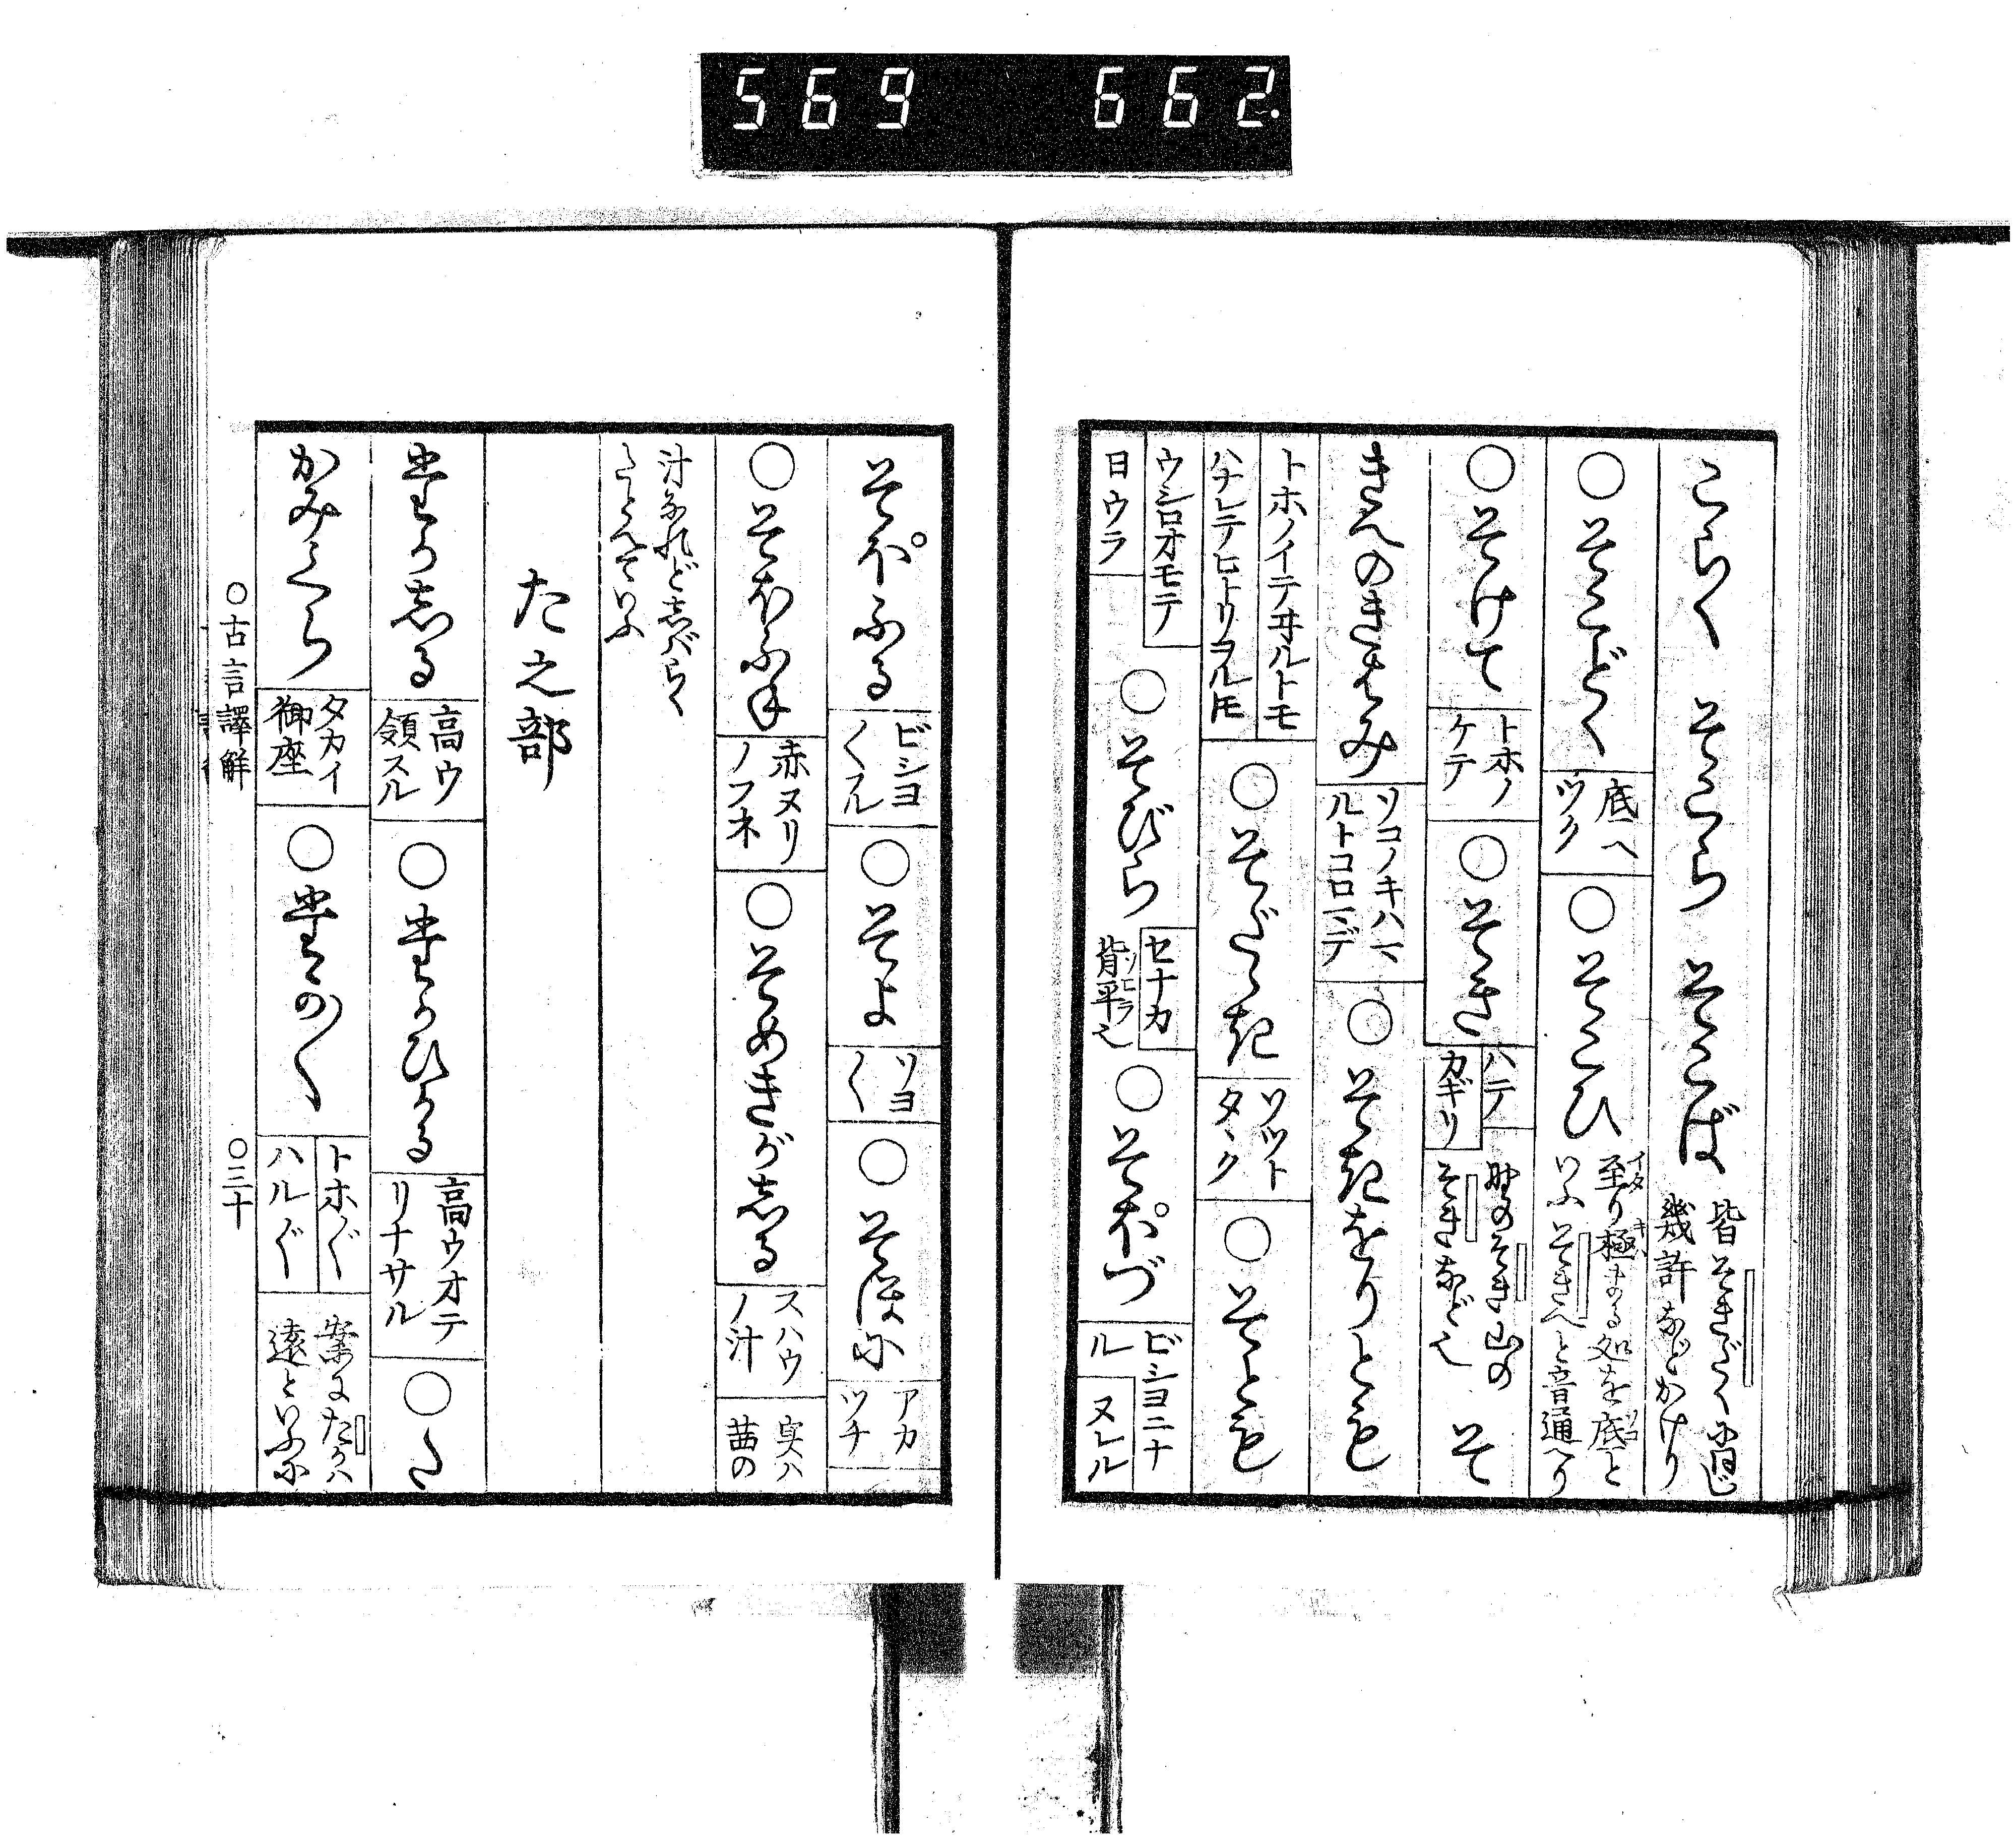 569 662
こらく そこら そこば 皆そきだく に同じ
幾許などかけり
○そこどく 底ヘツク ○そこひ 至り極まる処を底と
いふそきへと音通へり
○そけて トホノケテ ○そき ハテ カギリ 野のそき山の
そきなど也 そ
きへのきはみ ソコノキハマルトコロマデ ○そきをりとも
トホノイテヰルトモ
ハナレテヒトリヲルトモ ○そだゝき ソツトタヽク ○そとも
ウシロオモテ
日ウラ ○そびら セナカ 背平也 ○そぼづ ビシヨニナル ヌレル
そぼふる ビシヨ〳〵スル ○そよ ソヨ〳〵 ○そほに アカツチ
○そほふね 赤ヌリノフネ ○そめきがしる スハウノ汁 実ハ
茜の
汁なれどしばらく
たとへていふ
た之部
たかしる 高ウ領スル ○たかひかる 高ウオテリナサル ○た
かみくら タカイ御座 ○たかの〳〵 トホ〴〵 ハル〴〵 案にたかハ
遠といふに
○古言譯解 ○三十